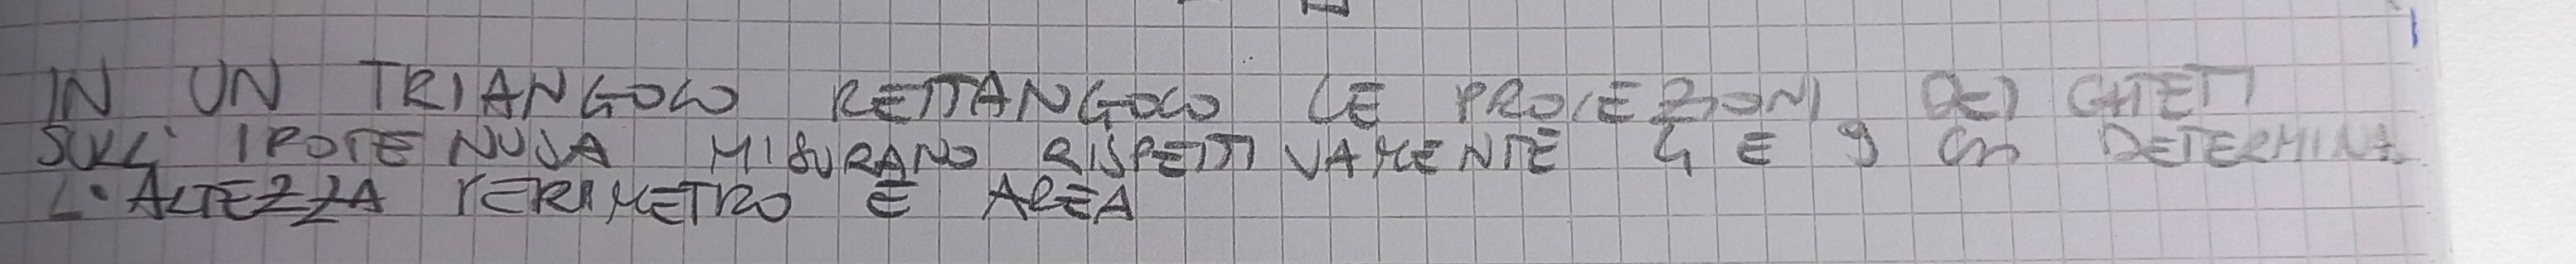 IN UN TRIANGOLO RETTANGOLO LE PROIEZIONI DEI CATETI
SULL' IPOTENUSA MISURANO RISPETTIVAMENTE 4 E 9 cm DETERMINA
L'ALTEZZA PERIMETRO E AREA